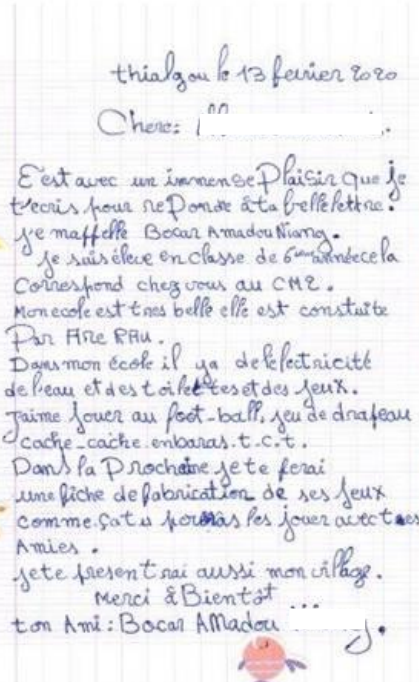 thialgou le 13 fevrier 2020
Chere:
C'est avec un immense Plaisir que je
t'ecris pour reponde à ta belle lettre.
je mappelle Bocar Amadou Niang.
je suis éleve en classe de 6eme année cela
Correspond chez vous au CM2.
Mon ecole est tres belle elle est constuite
Par
Dans mon école il ya de l'electricité
de l'eau et des toilettes et des jeux.
J'aime jouer au foot-ball, jeu de drapeau
cache-cache t.c.t.
Dans la Prochaine je te ferai
une fiche de fabrication de ses jeux
comme ça tu pourras les jouer avec tes
Amies.
je te presentrai aussi mon village.
Merci à Bientôt
ton Ami: Bocar AMadou